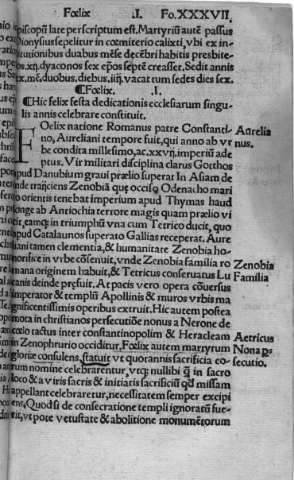 Fœlix .I. Fo.XXXVII.
episcopũ late perscriptum est. Martyriũ autẽ passus
Dionysius sepelitur in cœmiterio calixti, vbi ex in-
stitutionibus duabus mẽse decẽbri habitis presbite-
ros.xij, dyaconos sex ep̃os septẽ creasset. Sedit annis
sex, mẽ, duobus, diebus, iiij, vacat tum sedes dies sex.
¶ Fœlix. .I.
¶ Hic felix festa dedicationis ecclesiarum singu-
lis annis celebrare constituit.
FOelix natione Romanus patre Constanci-
no, Aureliani tempore fuit, qui anno ab vr
be condita millesimo, ac.xxvij, imperiũ ade
ptus. Vir militari disciplina clarus Gotthos
apud Danubium graui prælio superat In Asiam de
inde trãsciens Zenobiã quę occisq Odenacho mari
to orientis tenebat imperium apud Thymas haud
longe ab Antiochia terrore magis quam prælio vi
cit, eamq in triumphũ vna cum Tetrico ducit, quo
apud Catalaunos superato Gallias receperat. Aure
liani tamen clementia, & humanitate Zenobia ho-
norifice in vrbe cõsenuit, vnde Zenobia familia ro
mana originem habuit, & Tetricus conseruatus Lu
canis deinde pręfuit. At pacis vero opera cõuersus
imperator & templũ Apollinis & muros vrbis ma
gnificentissimis operibus extruit. Hic autem postea
in christianos persecutiõe nonus a Nerone de
cœlo tactus inter constantinopolim & Heracleam
in Zenophrurio occiditur, Fœlix autem martyrum
gloriæ consulens, statuit vt quotannis sacrificia eo-
rum nomine celebrarentur, vtq; nullibi q̃ in sacro
loco & a viris sacris & initiatis sacrificiũ qđ missam
appellant celebraretur, necessitatem semper excipi
ens, Quodsi de consecratione templi ignoratũ fue-
rit, vtpote vetustate & abolitione monumẽtorum
Aurelia
nus.
Zenobia
Familia
Aetricus
Nona ps
secutio.